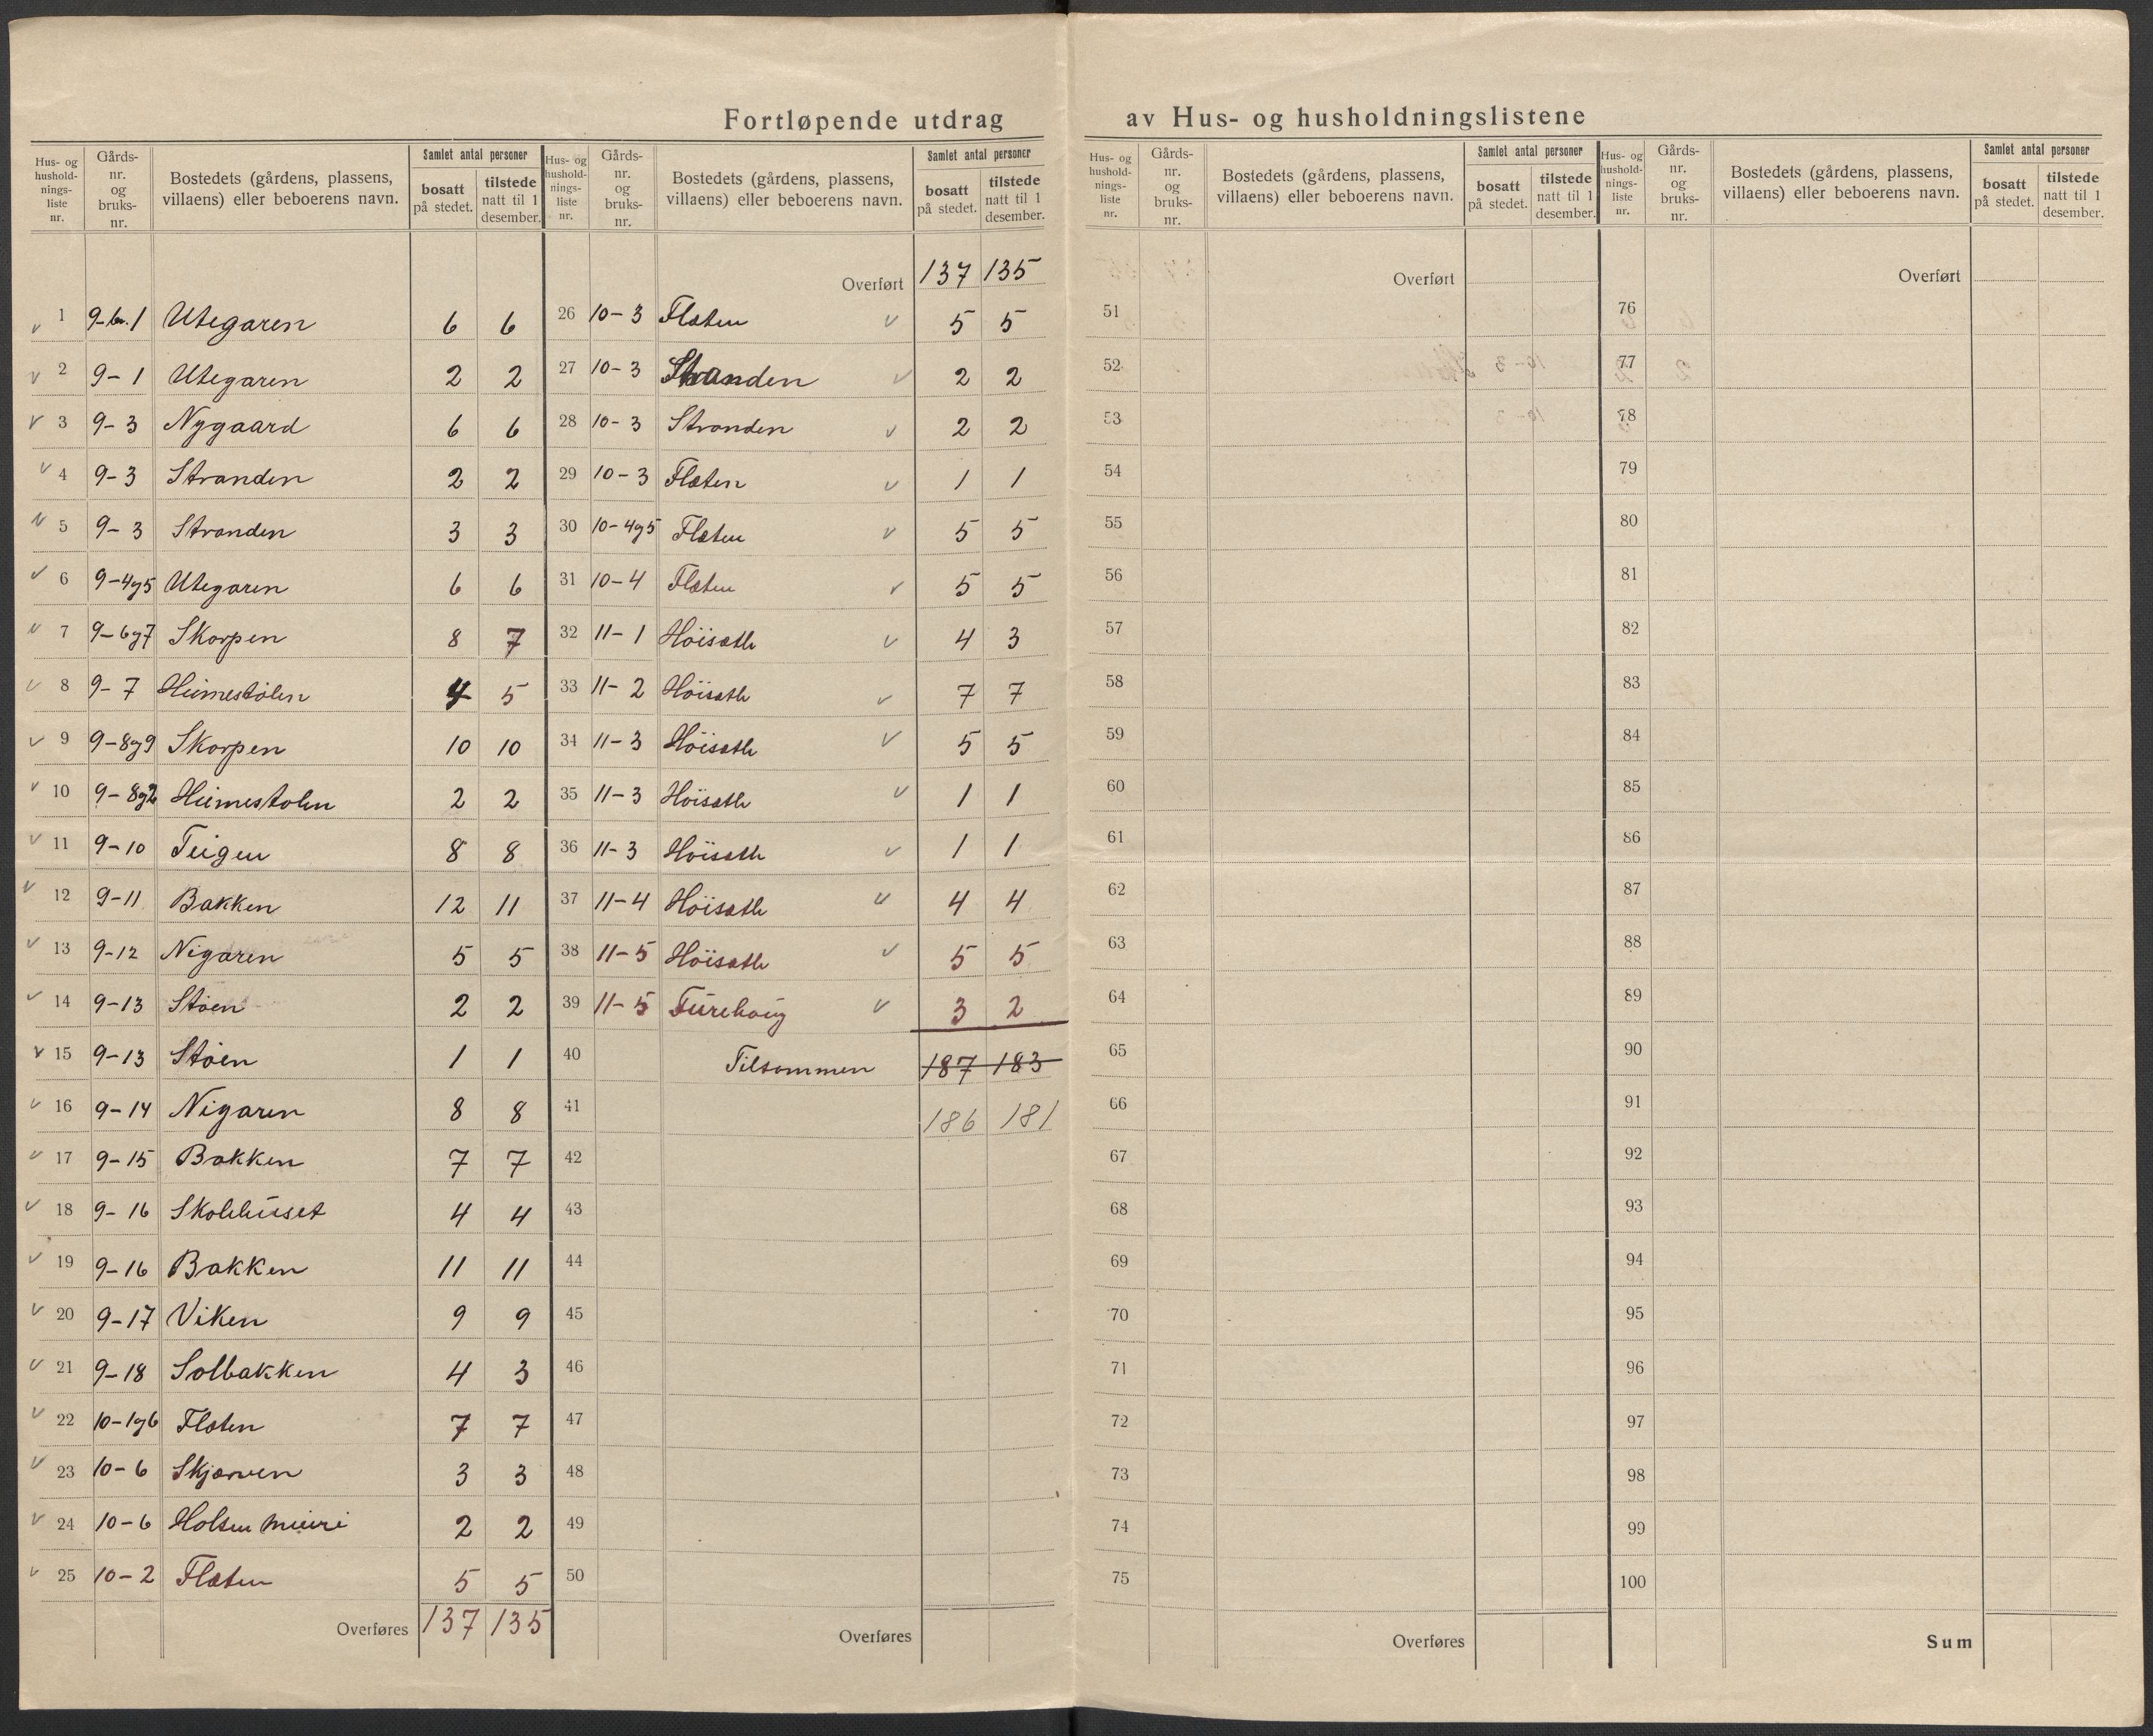 Fortløpende utdrag av Hus- og husholdningslistene
Hus- og hushold-nings-liste nr. | Gårds-nr. og bruks-nr. | Bostedets (gårdens, plassens, villaens) eller beboerens navn. | Samlet antal personer | bosatt på stedet. | tilstede natt til 1 desember.
1 9-6.1 Utegaren 6 6
2 9-1 Utegaren 2 2
3 9-3 Nygaard 6 6
4 9-3 Stranden 2 2
5 9-3 Stranden 3 3
6 9-4g5 Utegaren 6 6
7 9-6g7 Skorpen 8 7
8 9-7 Heimestølen 4 5
9 9-8g9 Skorpen 10 10
10 9-8g2 Heimestølen 2 2
11 9-10 Teigen 8 8
12 9-11 Bakken 12 11
13 9-12 Nigaren 5 5
14 9-13 Støen 2 2
15 9-13 Støen 1 1
16 9-14 Nigaren 8 8
17 9-15 Bakken 7 7
18 9-16 Skolehuset 4 4
19 9-16 Bakken 11 11
20 9-17 Viken 9 9
21 9-18 Solbakken 4 3
22 10-1g6 Flaten 7 7
23 10-6 Skjørven 3 3
24 10-6 Holsen 2 2
25 10-2 Flaten 5 5
Overføres 137 135
Hus- og hushold-nings-liste nr. | Gårds-nr. og bruks-nr. | Bostedets (gårdens, plassens, villaens) eller beboerens navn. | Samlet antal personer | bosatt på stedet. | tilstede natt til 1 desember.
Overført 137 135
26 10-3 Flaten 5 5
27 10-3 Stranden 2 2
28 10-3 Stranden 2 2
29 10-3 Flaten 1 1
30 10-4g5 Flaten 5 5
31 10-4 Flaten 5 5
32 11-1 Høisæth 4 3
33 11-2 Høisæth 7 7
34 11-3 Høisæth 5 5
35 11-3 Høisæth 1 1
36 11-3 Høisæth 1 1
37 11-4 Høisæth 4 4
38 11-5 Høisæth 5 5
39 11-5 Furehaug 3 2
40 Tilsammen 187 183
41 186 181
42
43
44
45
46
47
48
49
50
Overføres
Hus- og hushold-nings-liste nr. | Gårds-nr. og bruks-nr. | Bostedets (gårdens, plassens, villaens) eller beboerens navn. | Samlet antal personer | bosatt på stedet. | tilstede natt til 1 desember.
Overført
51
52
53
54
55
56
57
58
59
60
61
62
63
64
65
66
67
68
69
70
71
72
73
74
75
Overføres
Hus- og hushold-nings-liste nr. | Gårds-nr. og bruks-nr. | Bostedets (gårdens, plassens, villaens) eller beboerens navn. | Samlet antal personer | bosatt på stedet. | tilstede natt til 1 desember.
Overført
76
77
78
79
80
81
82
83
84
85
86
87
88
89
90
91
92
93
94
95
96
97
98
99
100
Sum